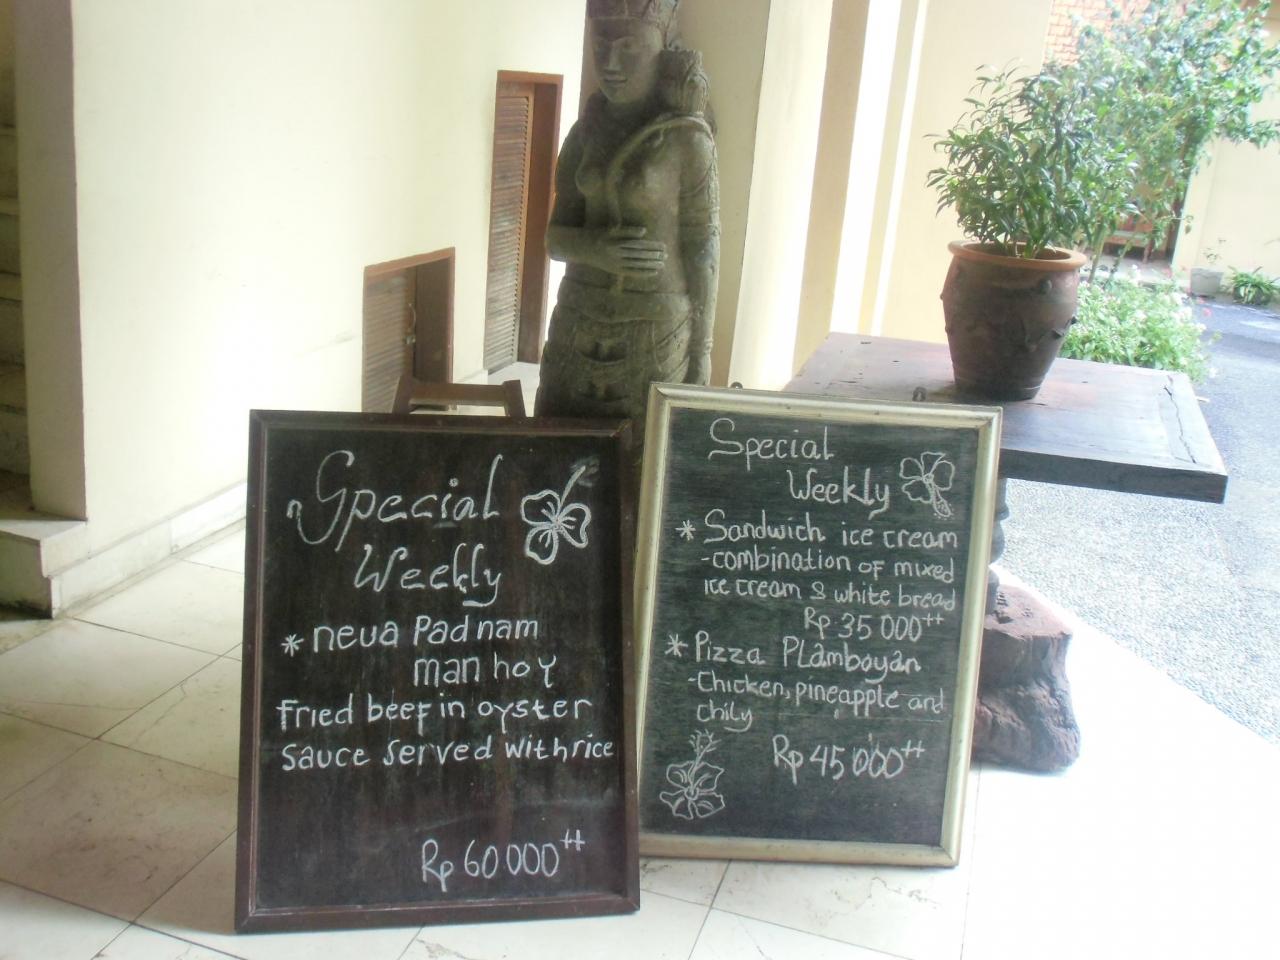 Special
Weekly
* neua Pad nam
man hoy
Fried beef in oyster
sauce served with rice
Rp 60 000++
Special
Weekly
* Sandwich ice cream
-combination of mixed
ice cream & white bread
Rp 35 000++
* Pizza PLamboyan
-Chicken, pineapple and
chily
Rp 45 000++